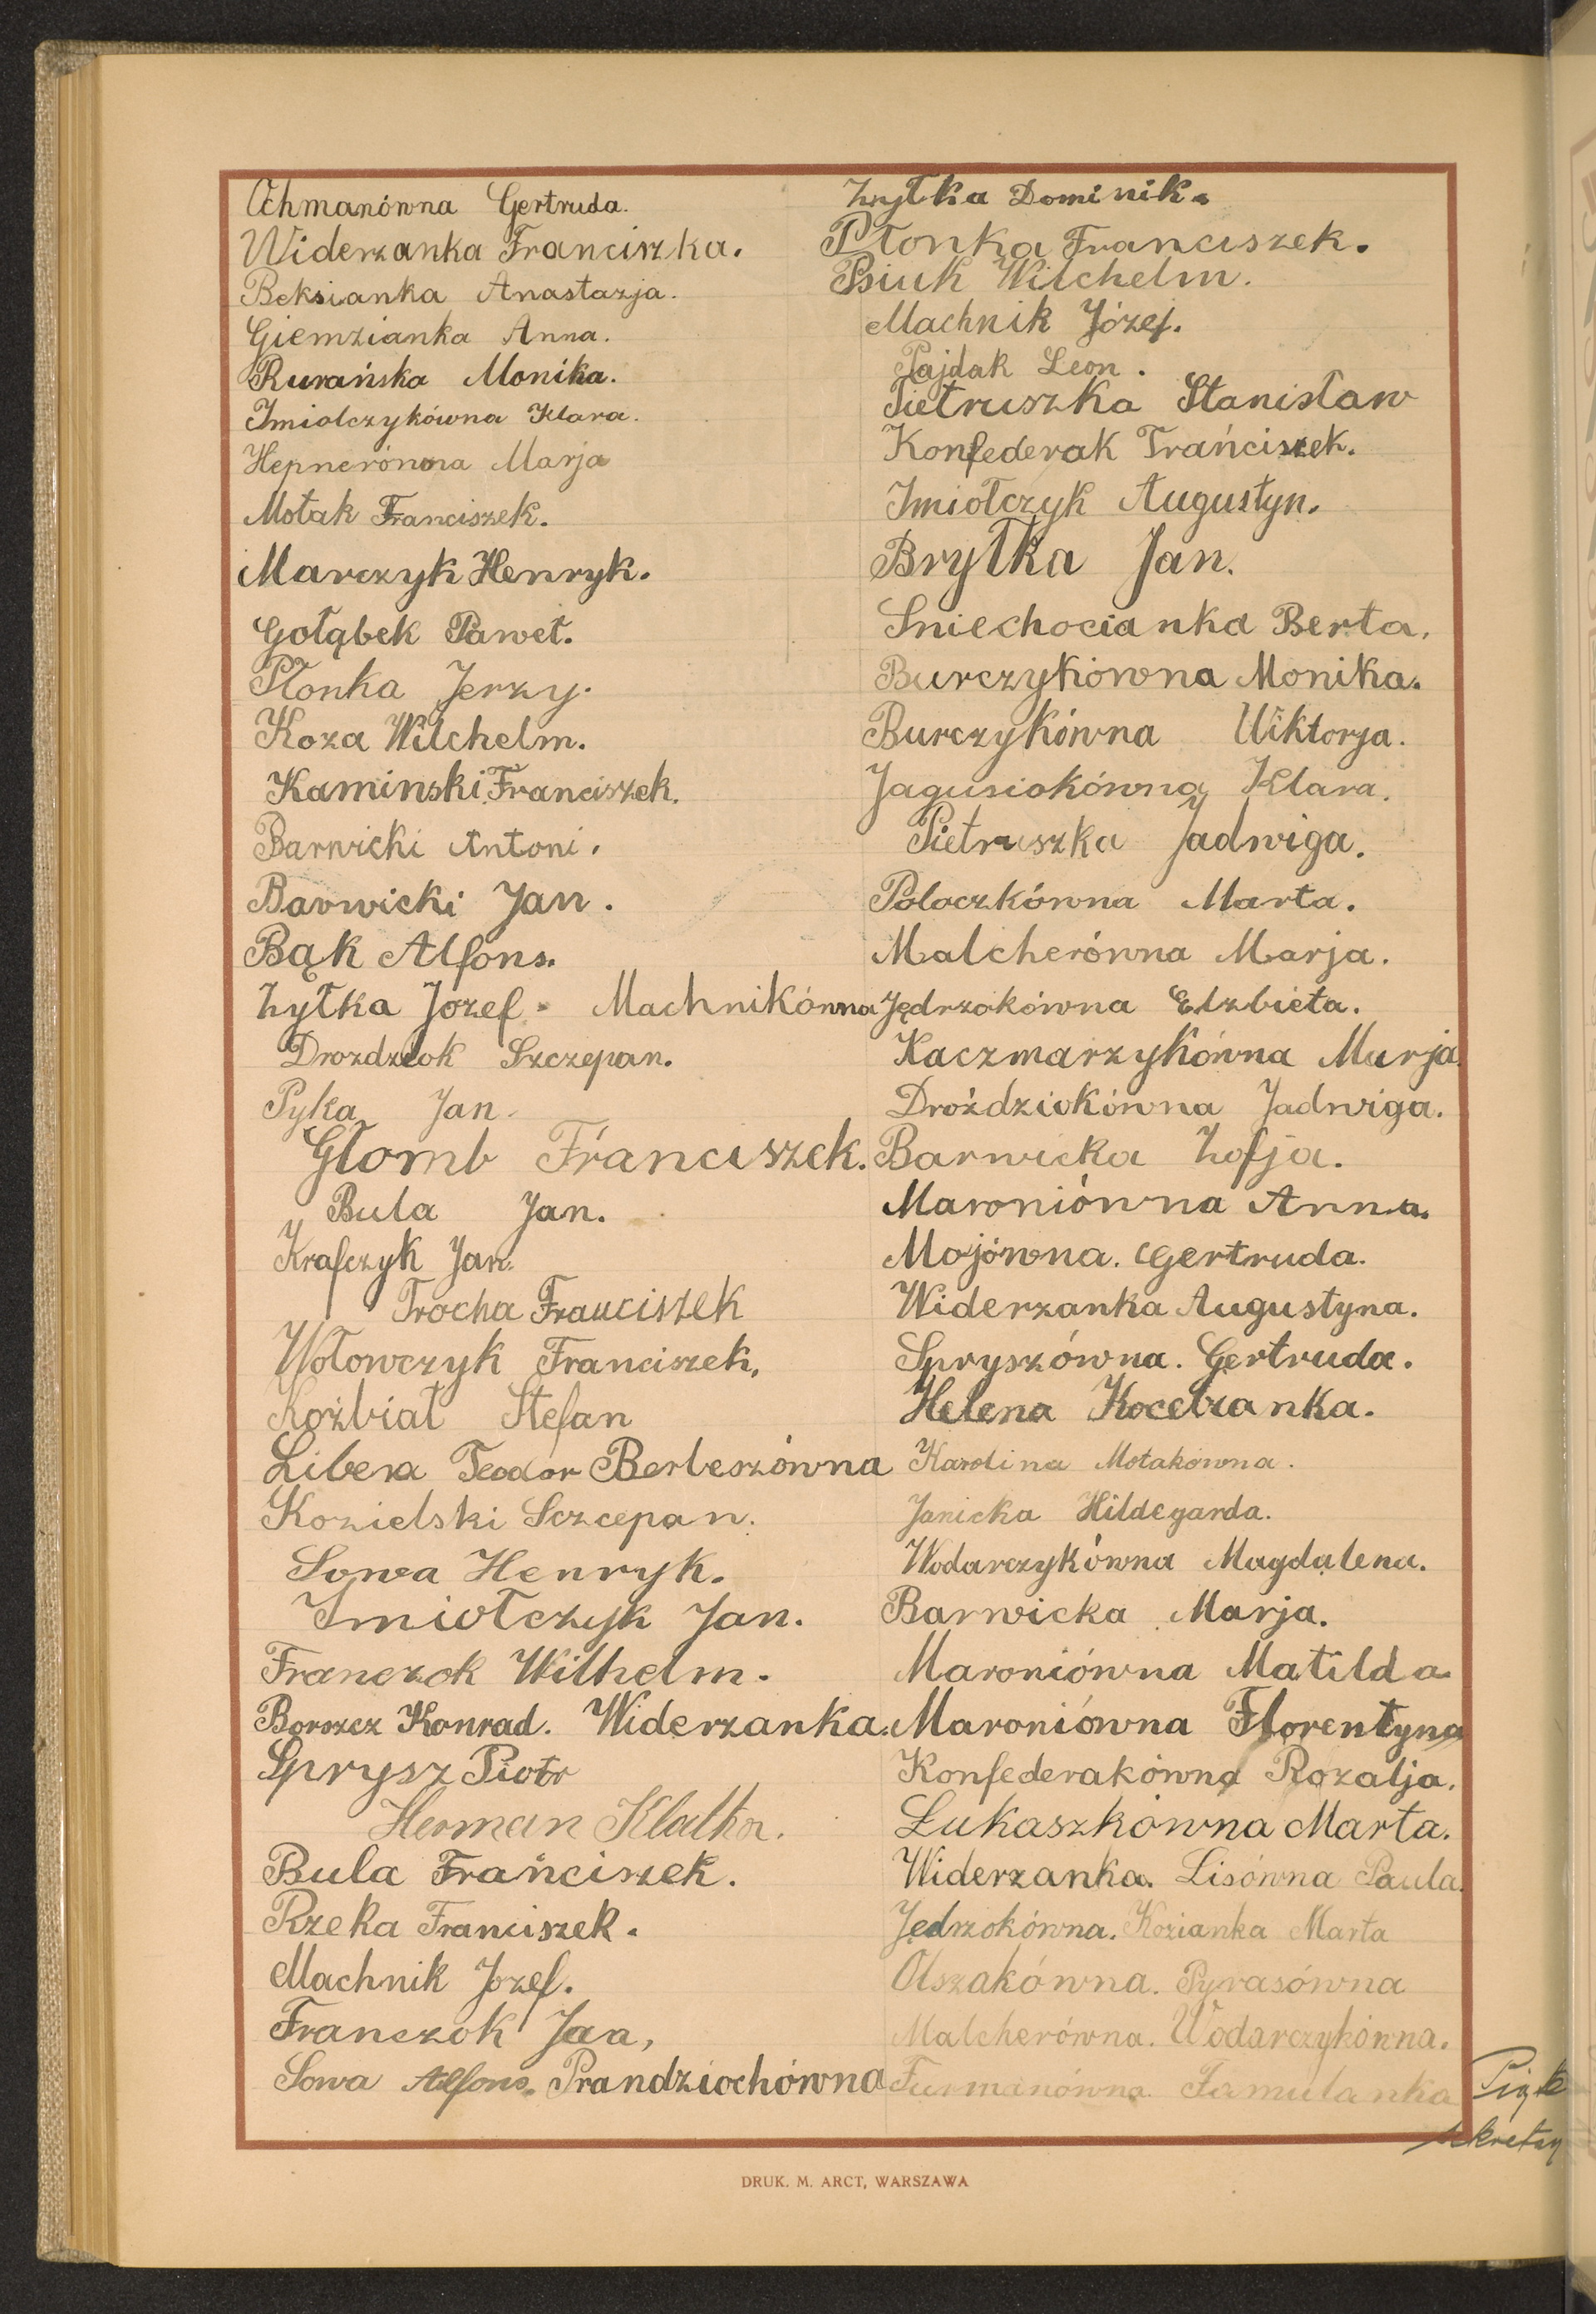 Achmanówna Gertruda.
Widerzanka Franciszka.
Beksianka Anastazja.
Giemzianka Anna.
Rurańska Monika.
Imiolczykówna Klara.
Hepnerówna Marja
Motak Franciszek.
Marczyk Henryk.
Gołąbek Paweł.
Płonka Jerzy.
Koza Wilchelm.
Kaminski Franciszek.
Barwicki Antoni.
Barwicki Jan.
Bąk Alfons.
Zyłka Jozef. Machnikówna
Drozdziok Szczepan.
Pyka Jan.
Głomb Franciszek.
Bula Jan.
Krafczyk Jan.
Trocha Franciszek
Wołowczyk Franciszek,
Koźbiał Stefan
Libera Teodor Berbeszówna
Kozielski Sczcepan.
Sowa Henryk.
Imiołczyk Jan.
Franczok Wilhelm.
Borszcz Konrad. Widerzanka.
Sprysz Piotr
Herman Klatka.
Bula Frańciszek.
Rzeka Franciszek.
Machnik Jozef.
Franczok Jan,
Sowa Alfons. Prandziochówna
Zyłka Dominik.
Płonka Franciszek.
Psiuk Wilchelm.
Machnik Józef.
Pajdak Leon.
Pietruszka Stanisław
Konfederak Frańciszek.
Imiołczyk Augustyn.
Bryłka Jan.
Sniechocianka Berta.
Burczykówna Monika.
Burczykówna Wiktorja.
Jagusiokówna Klara.
Pietruszka Jadwiga.
Poloczkówna Marta.
Malcherówna Marja.
Jędrzokówna Elzbieta.
Kaczmarzykówna Marja.
Droździokówna Jadwiga.
Barwicka Zofja.
Maroniówna Anna.
Mojówna. Gertruda.
Widerzanka Augustyna.
Spryszówna. Gertruda.
Helena Kocebzanka.
Karolina Motakówna.
Janicka Hildegarda.
Wodarczykówna Magdalena.
Barwicka Marja.
Maroniówna Matilda
Maroniówna Florentyna
Konfederakówna Rozalja.
Łukaszkówna Marta.
Widerzanka. Lisówna Paula.
Jędrzokówna. Kozianka Marta
Olszakówna. Pyrasówna
Malcherówna. Wodarczykówna.
Furmanówna. Famulanka
Piątk
sekretarz
DRUK. M. ARCT, WARSZAWA